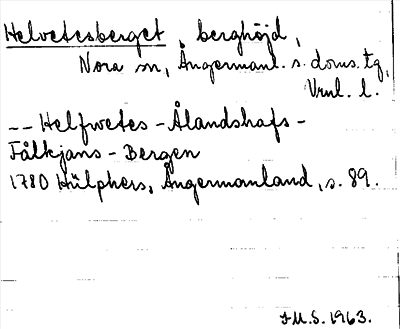 Helvetesberget, berghöjd,
Nora sn, Ångermanl. s. doms. tg,
Vrnl. l.
-- Helfwetes - Ålandshafs -
Fålkjans - Bergen
1780 Hülphers, Ångermanland, s. 89.
I.M.S. 1963.